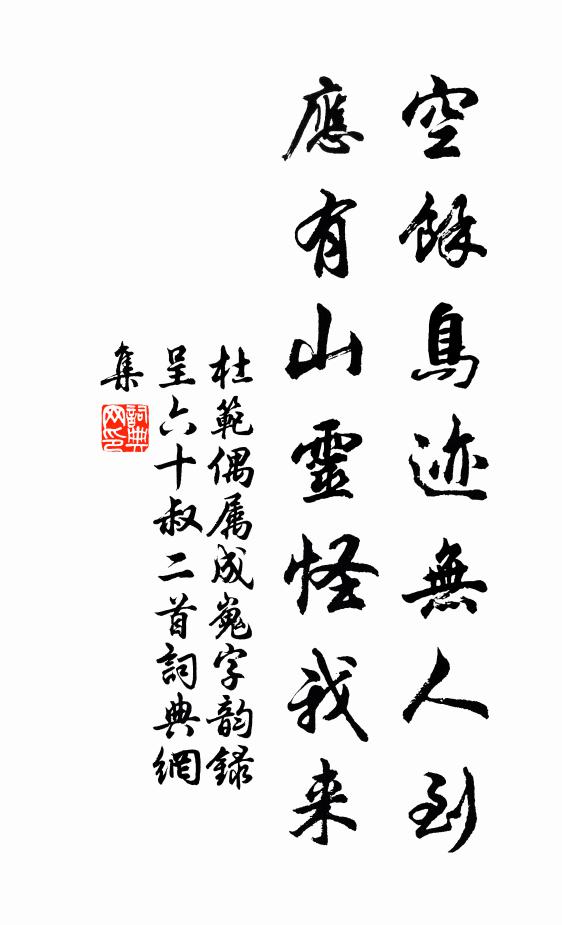 空餘鳥迹無人到
應有山靈怪我来
杜範偶属成嵬字韵録
呈六十叔二首詞典網
集
詞典
网印